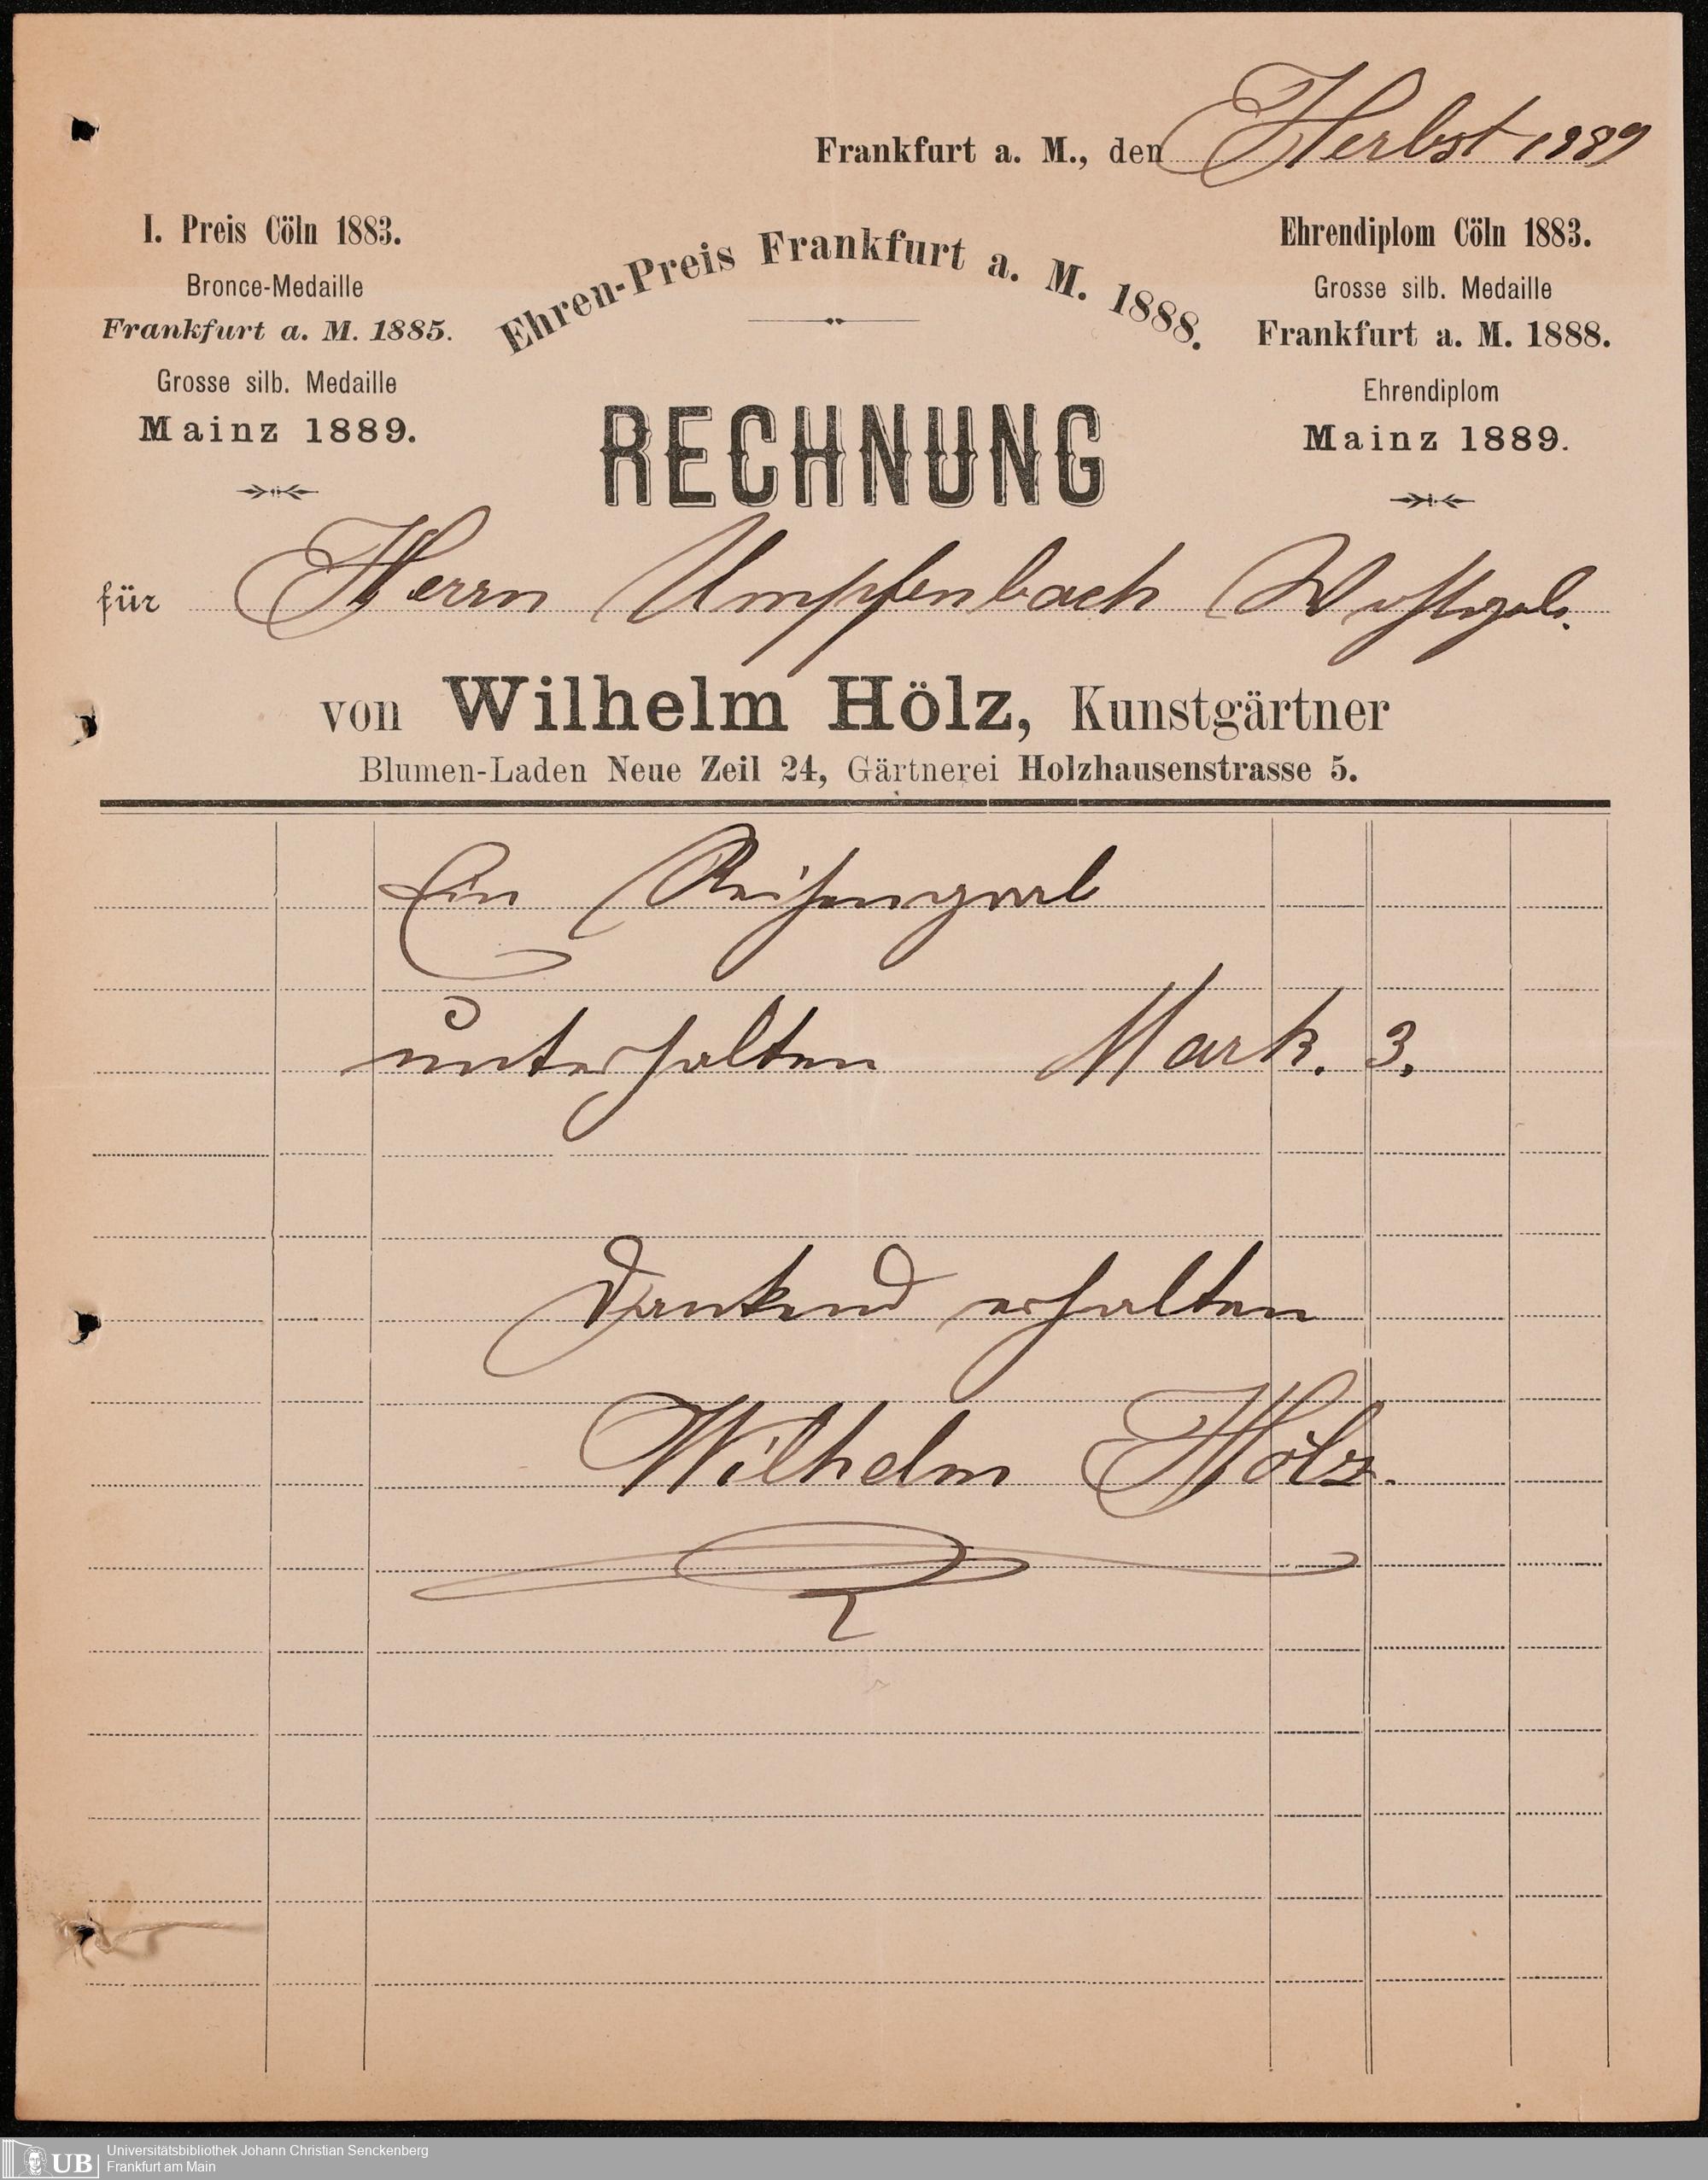 Frankfurt a. M., den Herbst 1889
I. Preis Cöln 1883.
Bronce-Medaille
Frankfurt a. M. 1885.
Grosse silb. Medaille
Mainz 1889.
Ehren-Preis Frankfurt a. M. 1888.
Ehrendiplom Cöln 1883.
Grosse silb. Medaille
Frankfurt a. M. 1888.
Ehrendiplom
Mainz 1889.
RECHNUNG
für Herrn Umpfenbach
von Wilhelm Hölz, Kunstgärtner
Blumen-Laden Neue Zeil 24, Gärtnerei Holzhausenstrasse 5.
Ein
unterhalten Mark. 3.
Dankend erhalten
Wilhelm Hölz.
UB
Universitätsbibliothek Johann Christian Senckenberg
Frankfurt am Main